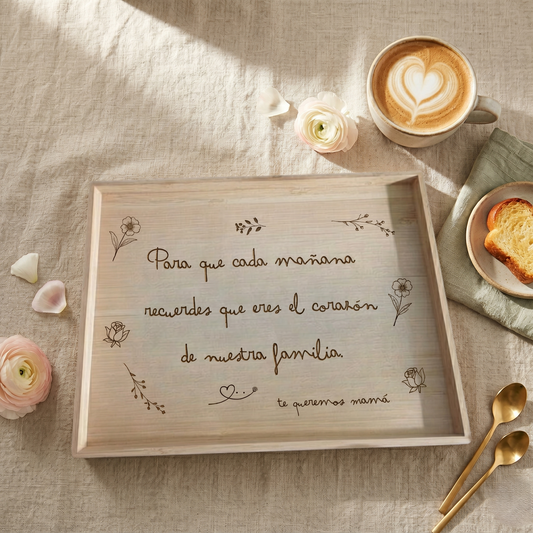 Para que cada mañana
recuerdes que eres el corazón
de nuestra familia.
te queremos mamá